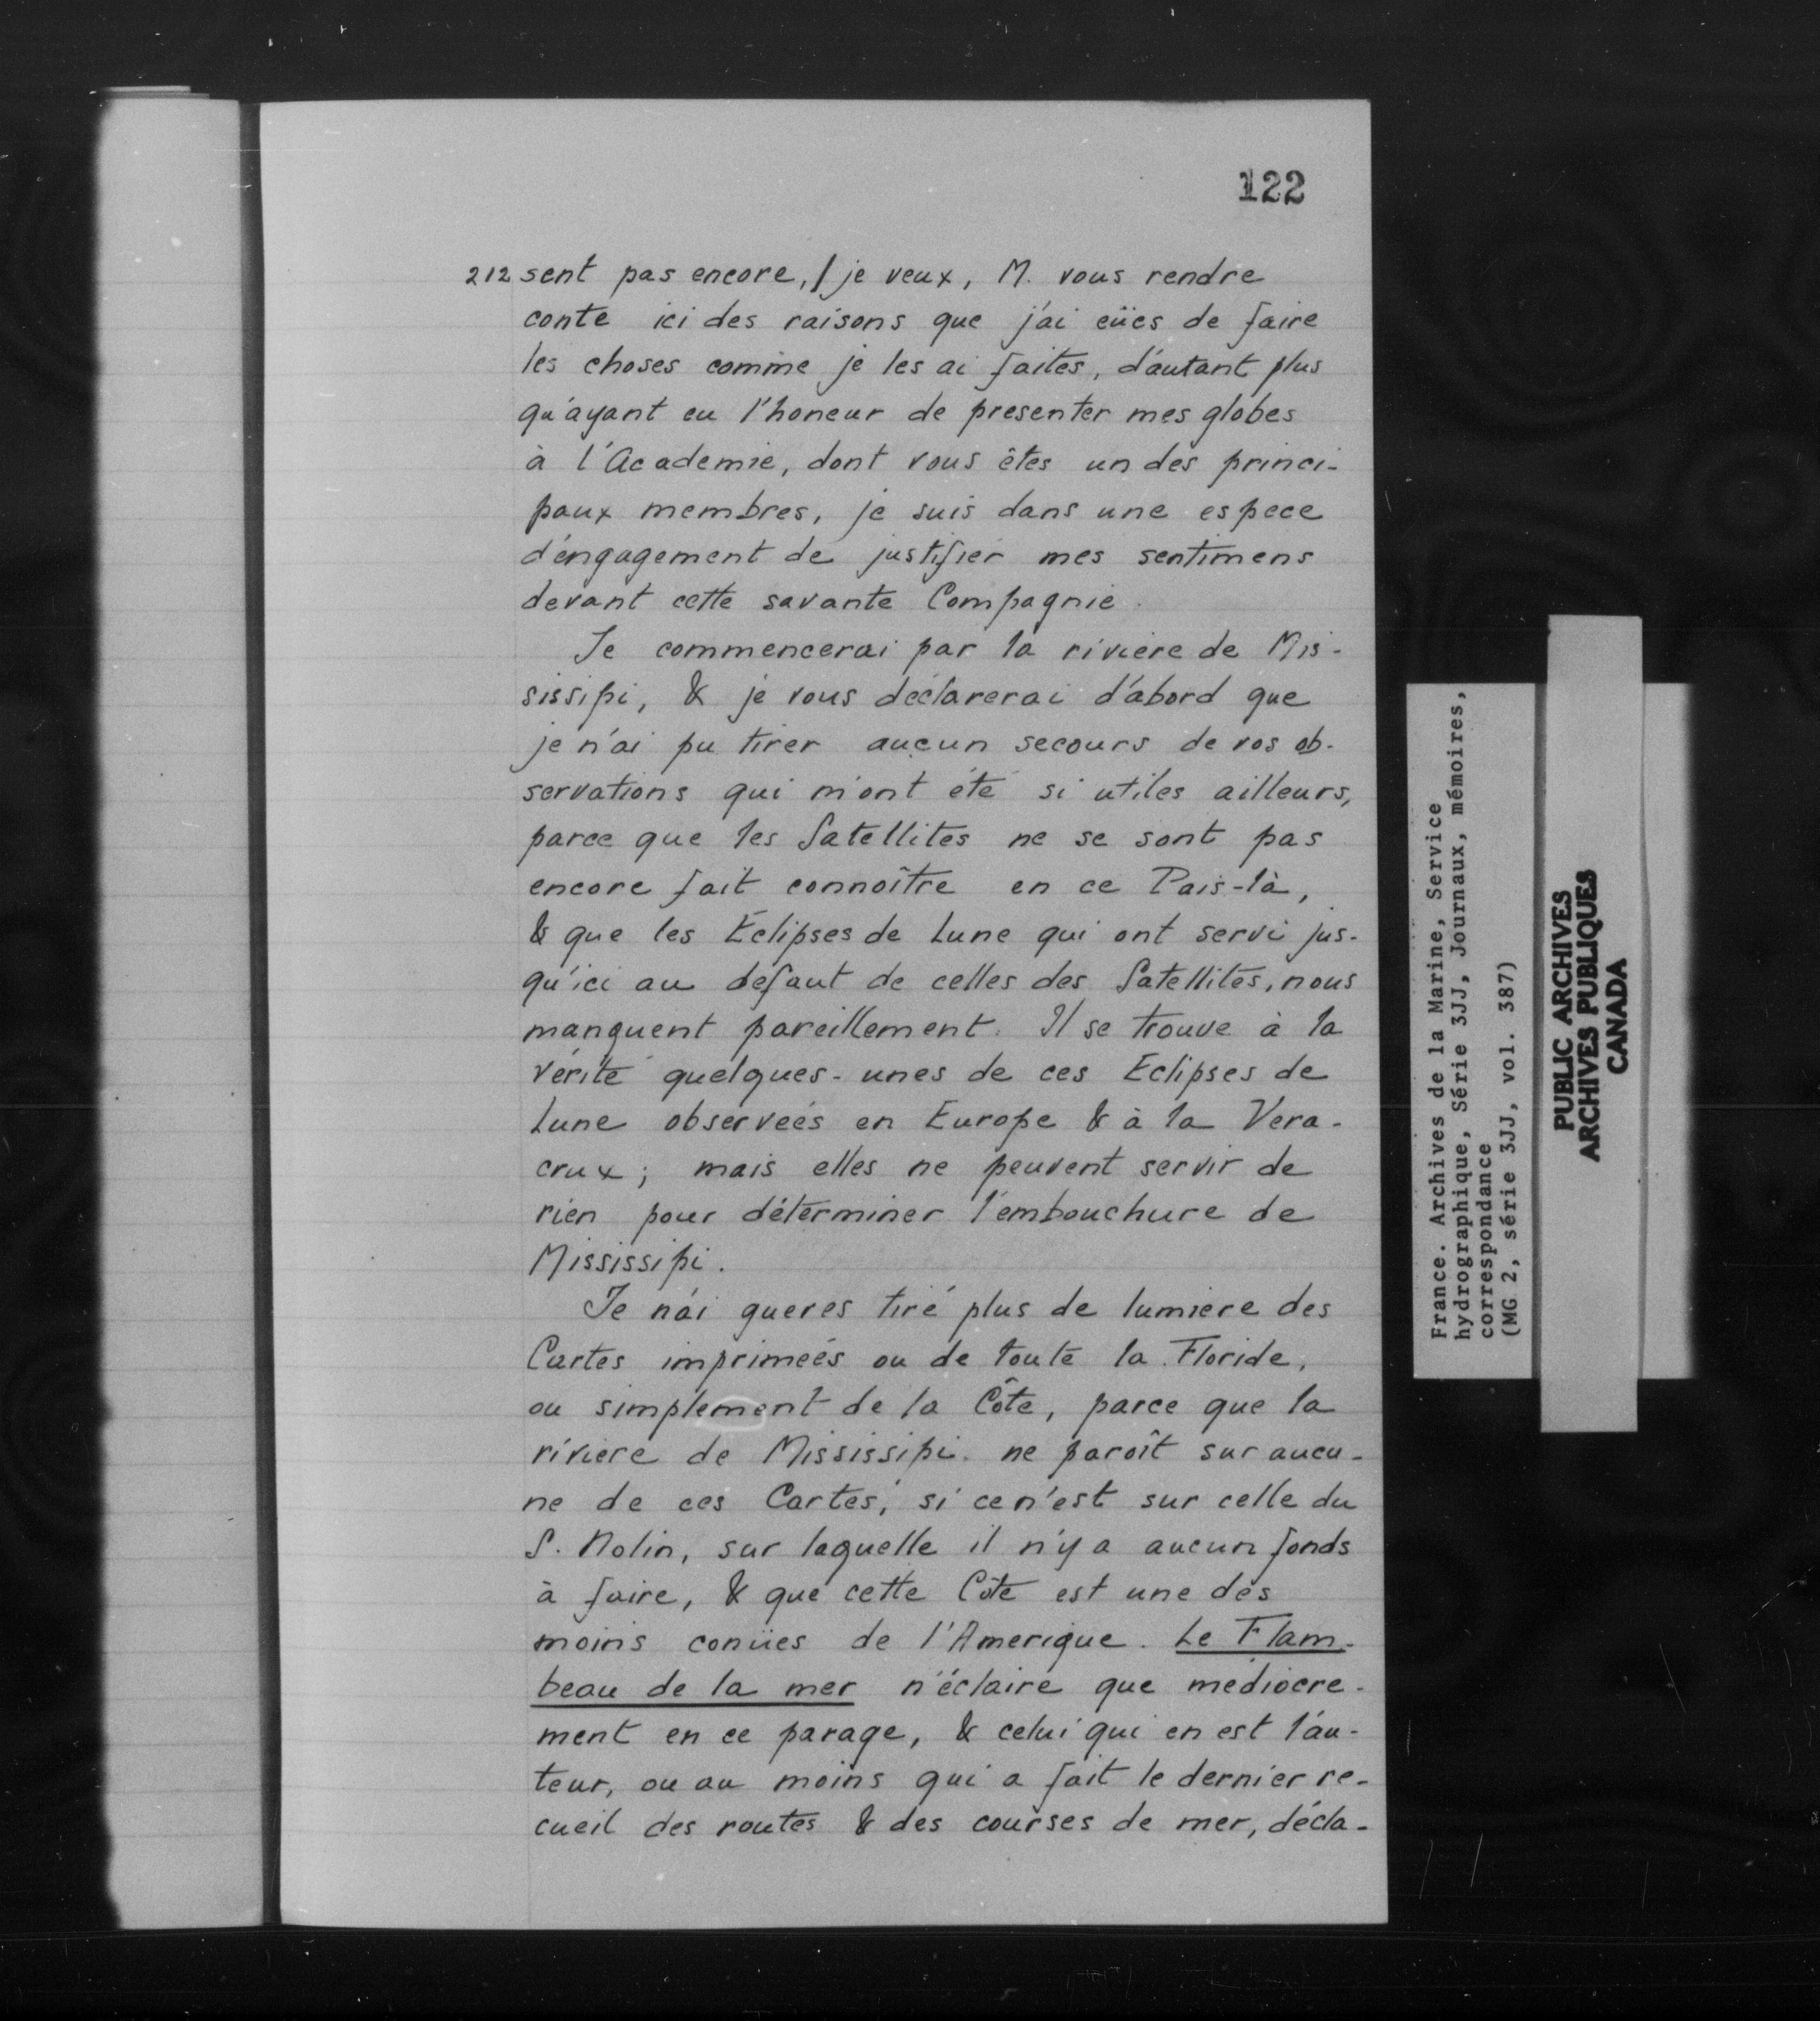 122
212 sent pas encore, / je veux, M. vous rendre
conte ici des raisons que j'ai eües de faire
les choses comme je les ai faites, d'autant plus
qu'ayant eu l'honeur de presenter mes globes
à l'Academie, dont vous êtes un des princi-
paux membres, je suis dans une espece
d'engagement de justifier mes sentimens
devant cette savante Compagnie.
Je commencerai par la riviere de Mis-
sissipi, & je vous declarerai d'abord que
je n'ai pu tirer aucun secours de vos ob-
servations qui m'ont été si utiles ailleurs,
parce que les Satellites ne se sont pas
encore fait connoître en ce Païs-là,
& que les Eclipses de Lune qui ont servi jus-
qu'ici au defaut de celles des Satellites, nous
manquent pareillement. Il se trouve à la
vérité quelques-unes de ces Eclipses de
Lune observées en Europe & à la Vera-
crux; mais elles ne peuvent servir de
rien pour déterminer l'embouchure de
Mississipi.
Je n'ai gueres tiré plus de lumiere des
Cartes imprimées ou de toute la Floride,
ou simplement de la Côte, parce que la
riviere de Mississipi ne paroît sur aucu-
ne de ces Cartes, si ce n'est sur celle du
S. Nolin, sur laquelle il n'y a aucun fonds
à faire, & que cette Côte est une des
moins conües de l'Amerique. Le Flam-
beau de la mer n'éclaire que mediocre-
ment en ce parage, & celui qui en est l'au-
teur, ou au moins qui a fait le dernier re-
cueil des routes & des courses de mer, décla-
France. Archives de la Marine, Service
hydrographique, Série 3JJ, Journaux, mémoires,
correspondance
(MG 2, série 3JJ, vol. 387)
PUBLIC ARCHIVES
ARCHIVES PUBLIQUES
CANADA